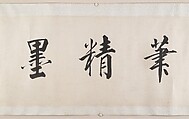 筆精墨